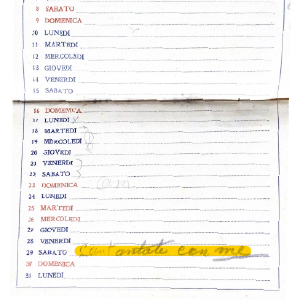 8 SABATO
9 DOMENICA
10 LUNEDI
11 MARTEDI
12 MERCOLEDI
13 GIOVEDI
14 VENERDI
15 SABATO
16 DOMENICA
17 LUNEDI x
18 MARTEDI
19 MERCOLEDI
20 GIOVEDI
21 VENERDI
22 SABATO
23 DOMENICA
24 LUNEDI
25 MARTEDI
26 MERCOLEDI
27 GIOVEDI
28 VENERDI
29 SABATO cantate con me
30 DOMENICA
31 LUNEDI